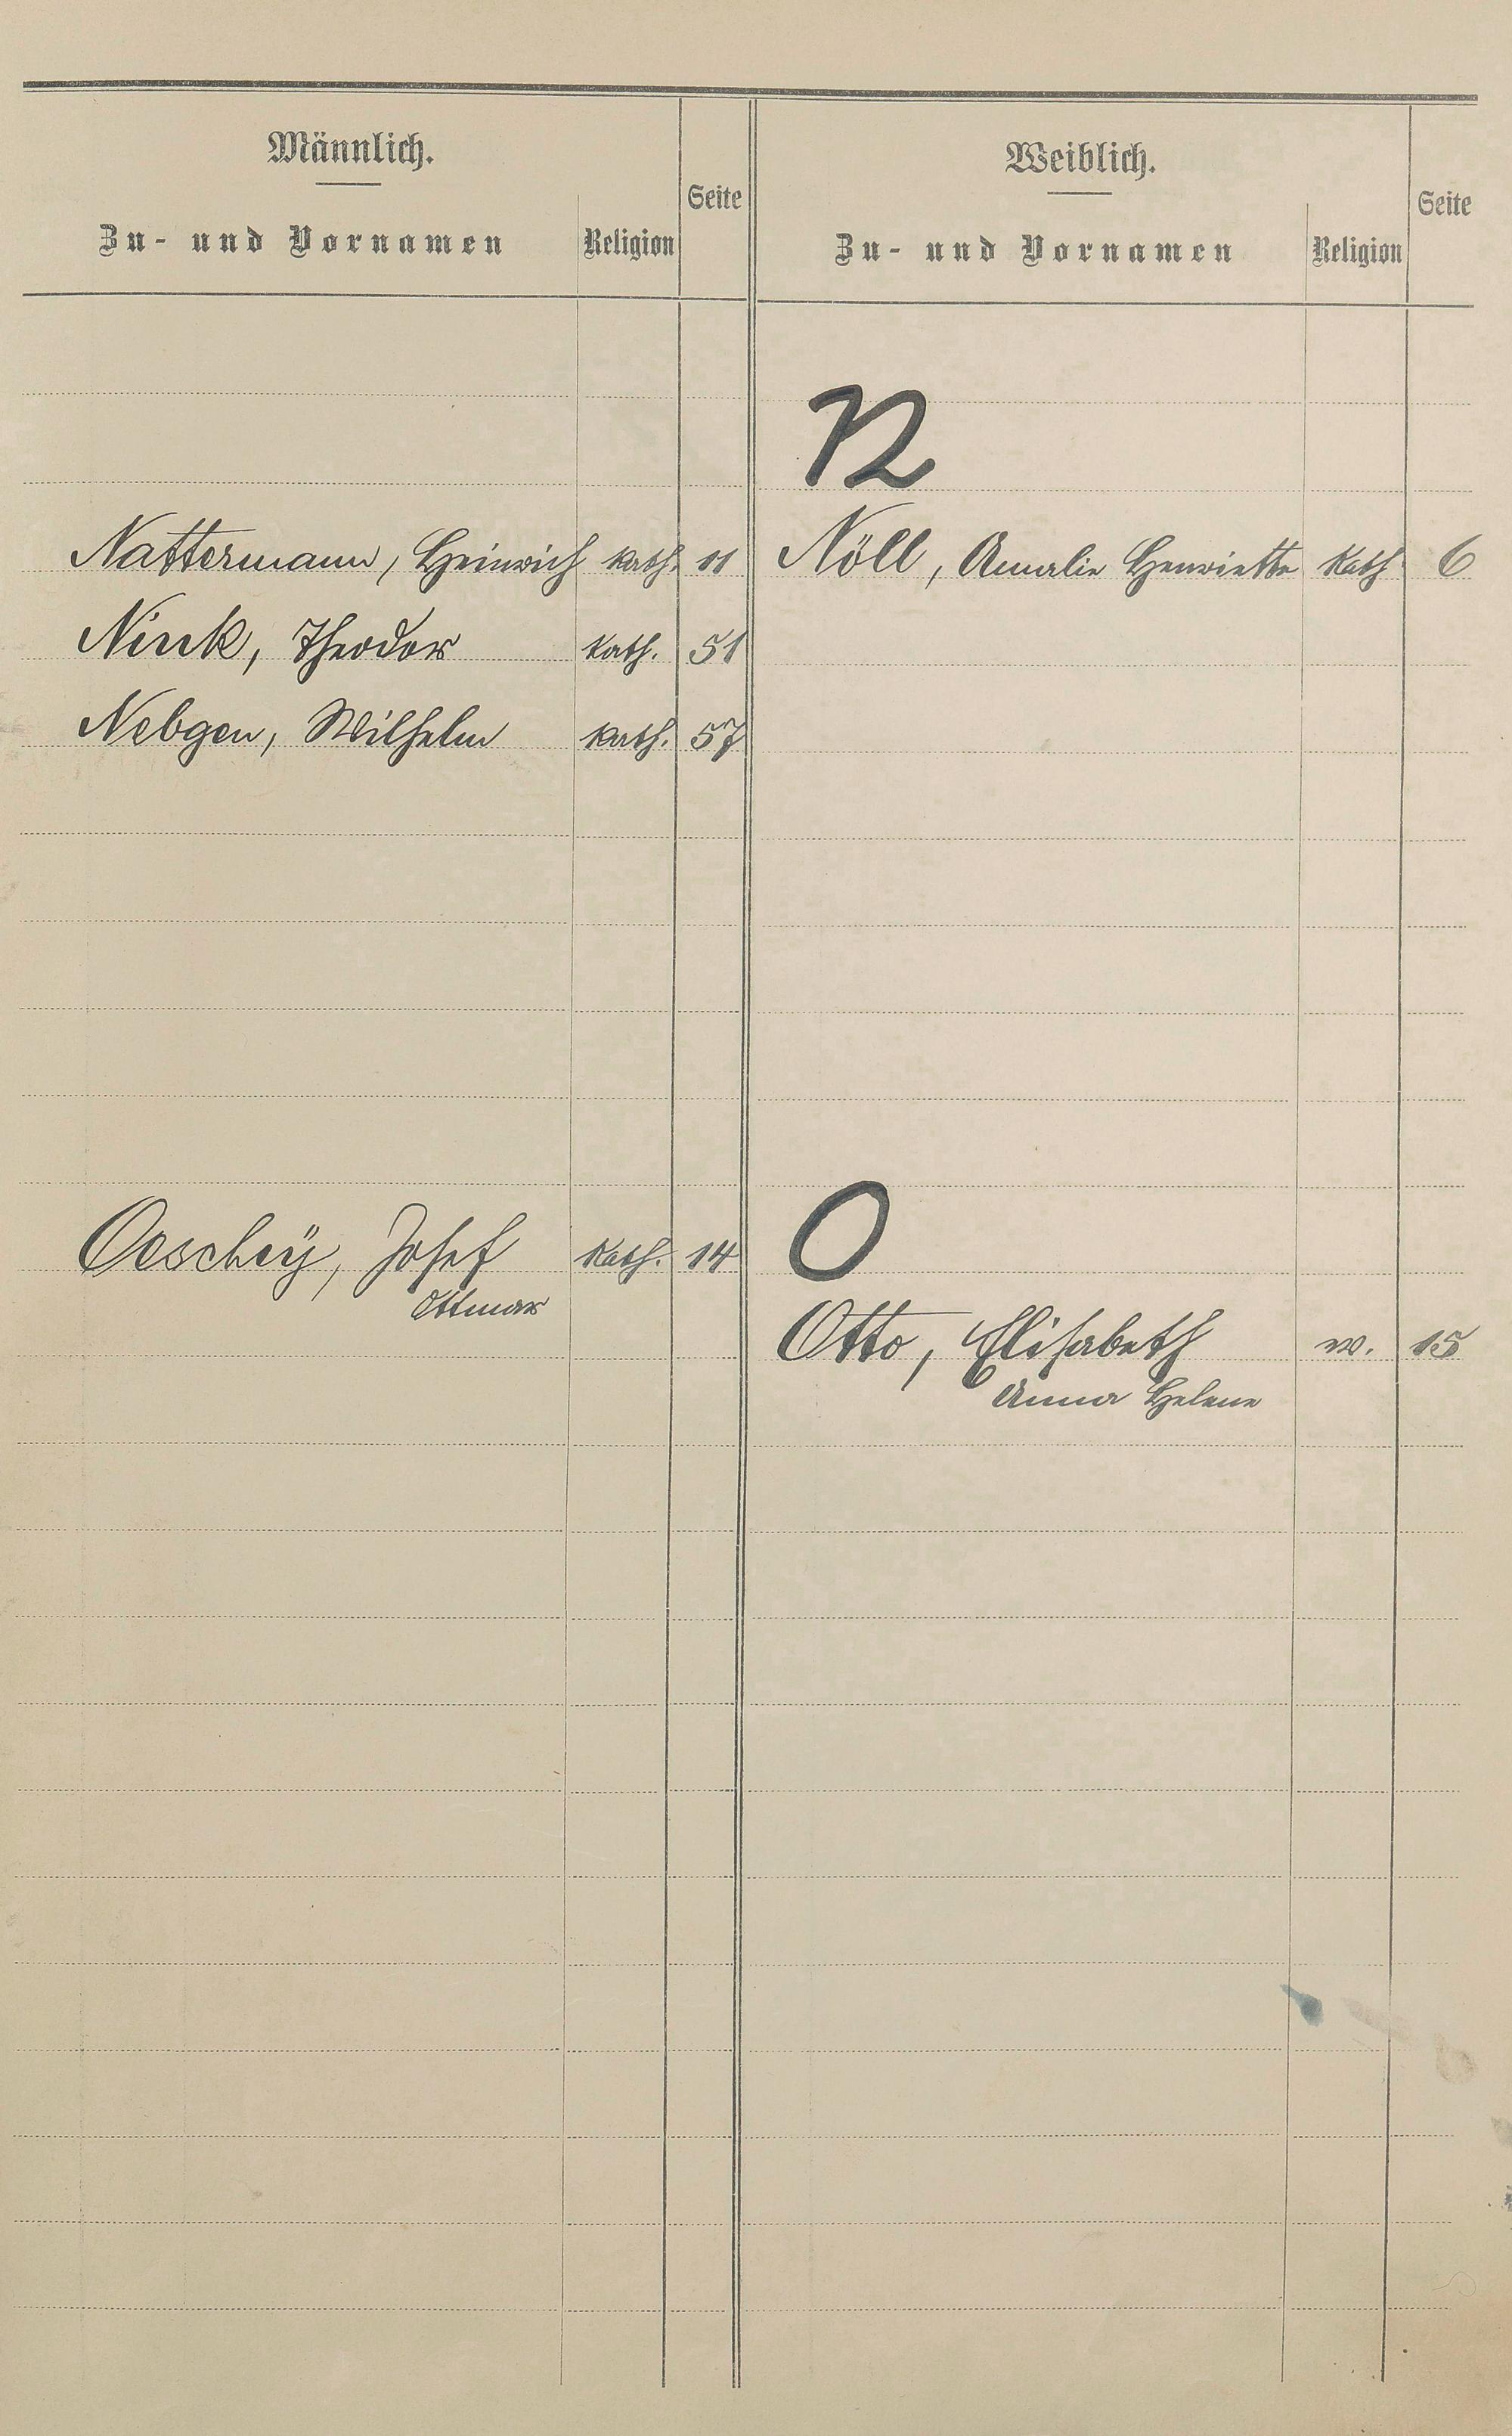 Männlich.
Zu- und Vornamen Religion Seite
Weiblich.
Zu- und Vornamen Religion Seite
N
Nattermann, Heinrich kath. 11
Nöll, Amalie Henriette Kath. 6
Ninck, Theodor kath. 51
Nebgen, Wilhelm kath. 57
O
Oeschey, Josef Kath. 14
Ottmar
Otto, Elisabeth 15
Anna Helene